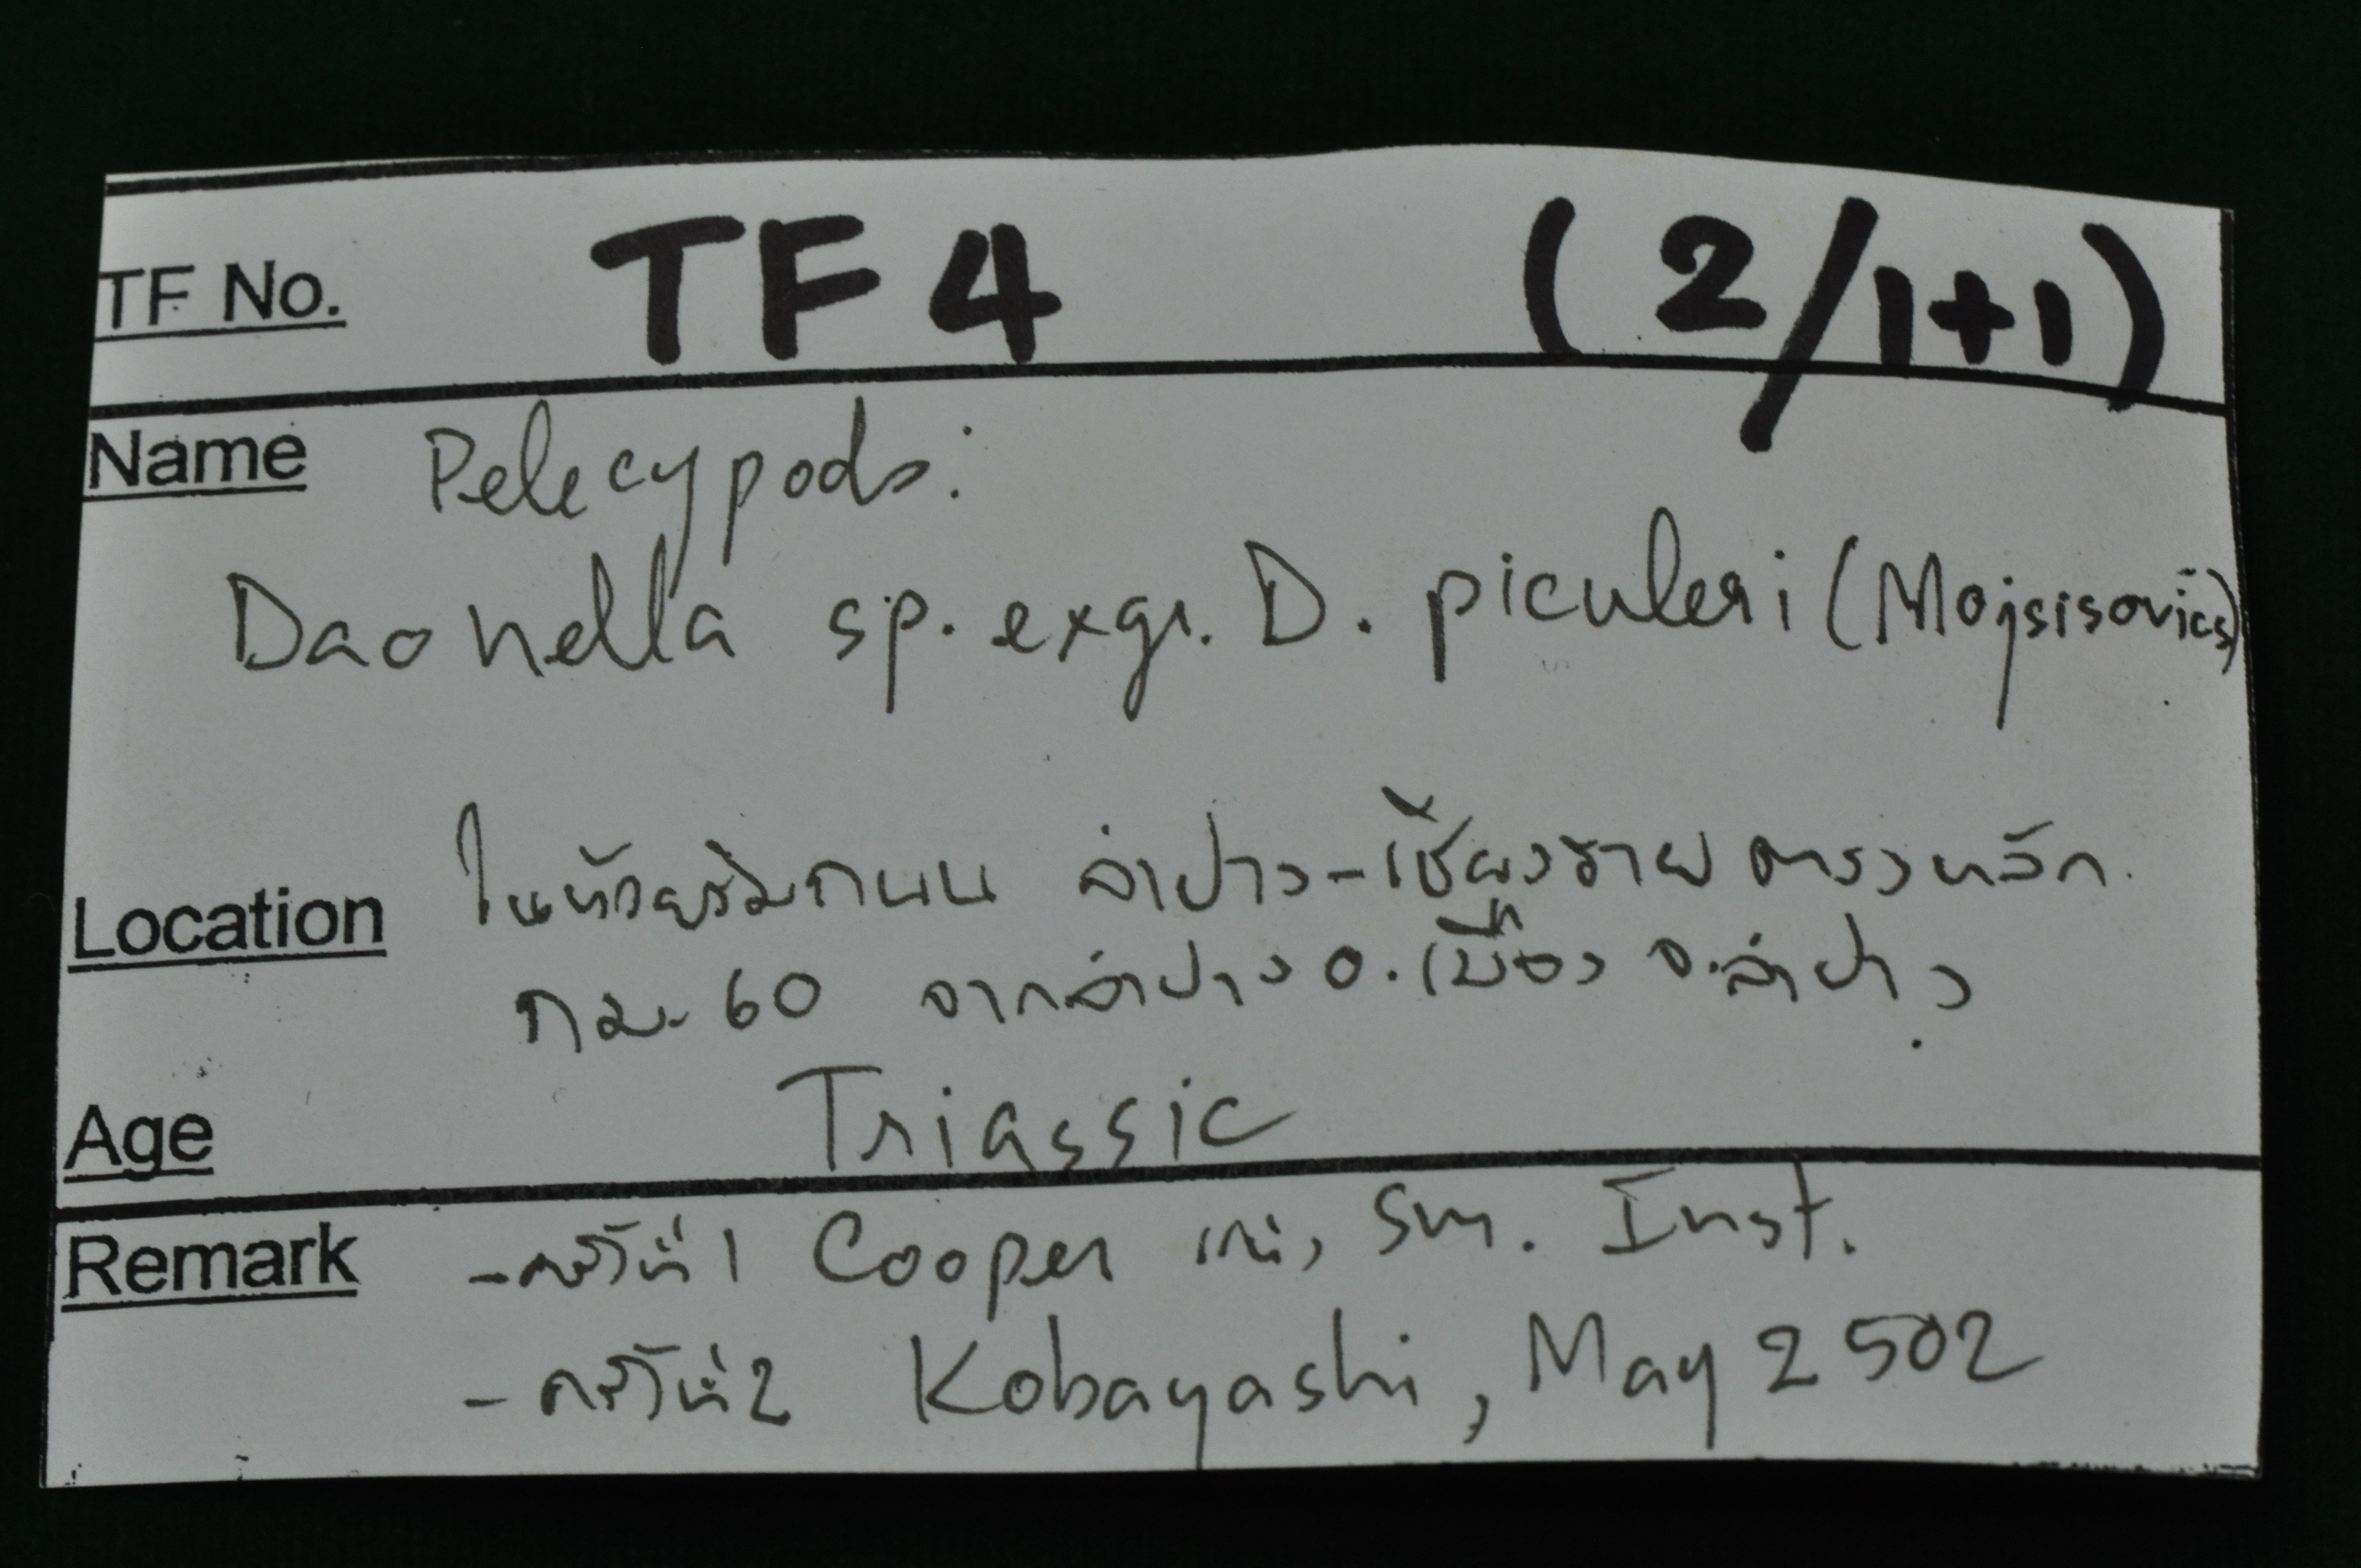 TF No. TF 4 (2/1+1)
Name Pelecypods:
Daonella sp. exgr. D. piculeri (Mojsisovics)
Location ในห้วยริมถนน ลำปาง-เชียงราย ตรงหลัก
กม. 60 จากลำปาง อ.เมือง จ.ลำปาง
Age Triassic
Remark -ครั้งที่ 1 Cooper Sm. Inst.
- ครั้งที่ 2 Kobayashi, May 2502